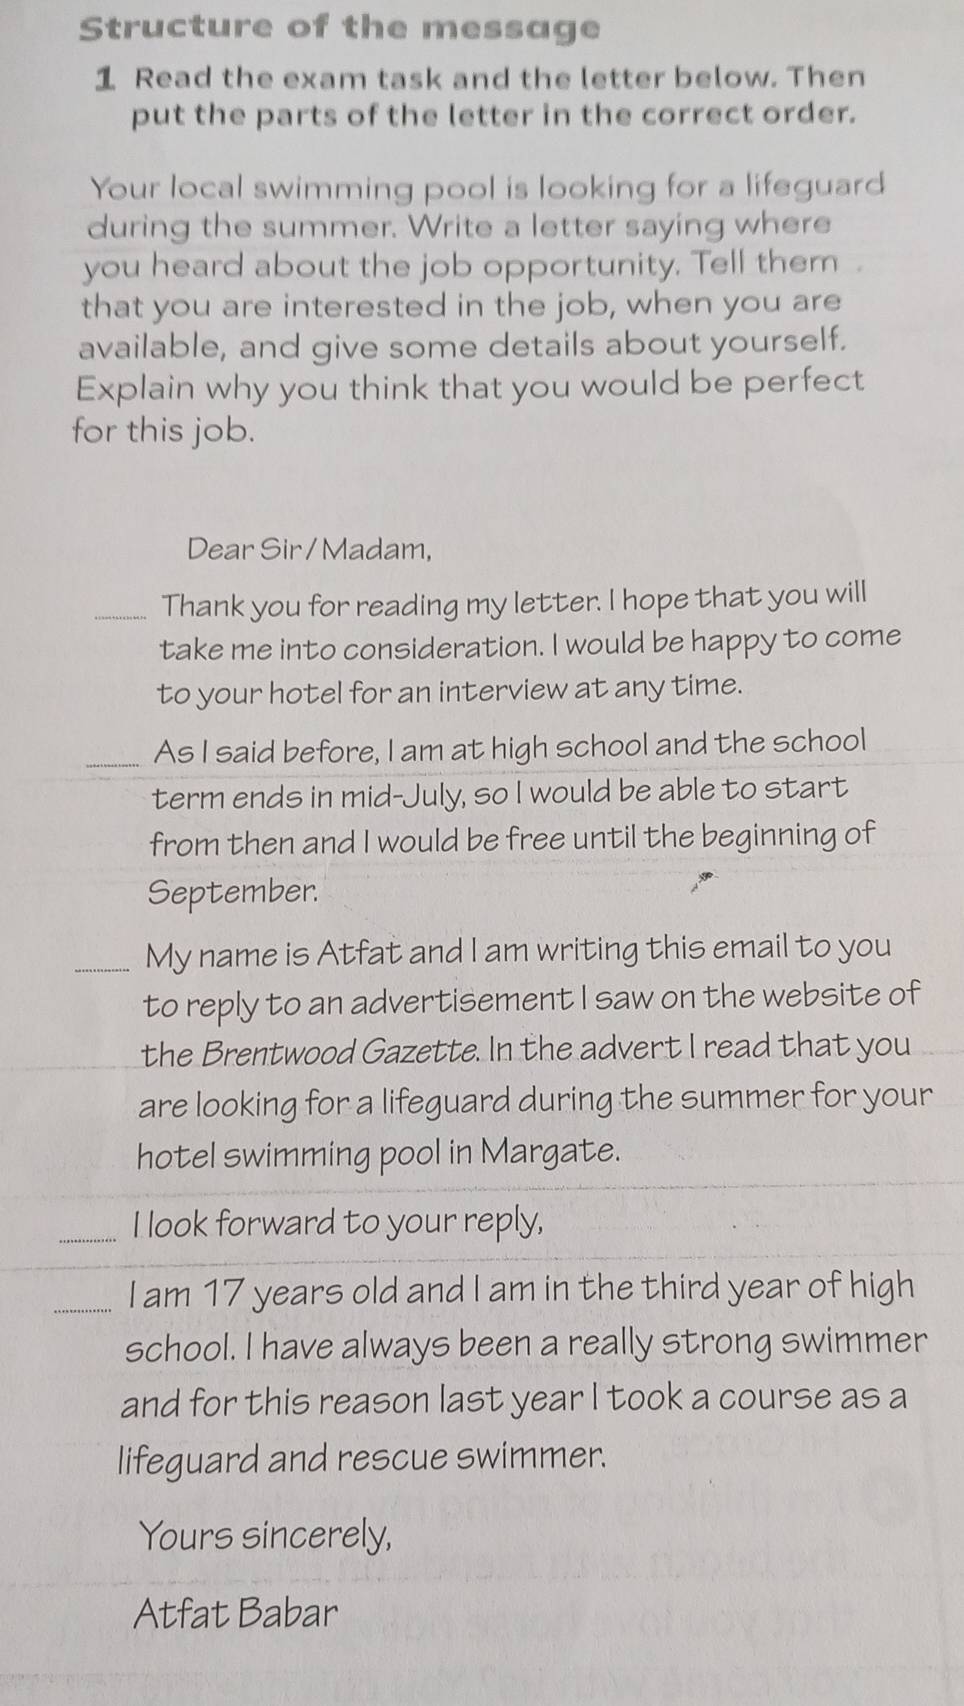 Structure of the message
1 Read the exam task and the letter below. Then
put the parts of the letter in the correct order.
Your local swimming pool is looking for a lifeguard
during the summer. Write a letter saying where
you heard about the job opportunity. Tell them
that you are interested in the job, when you are
available, and give some details about yourself.
Explain why you think that you would be perfect
for this job.
Dear Sir / Madam,
........... Thank you for reading my letter. I hope that you will
take me into consideration. I would be happy to come
to your hotel for an interview at any time.
........... As I said before, I am at high school and the school
term ends in mid-July, so I would be able to start
from then and I would be free until the beginning of
September.
........... My name is Atfat and I am writing this email to you
to reply to an advertisement I saw on the website of
the Brentwood Gazette. In the advert I read that you
are looking for a lifeguard during the summer for your
hotel swimming pool in Margate.
........... I look forward to your reply,
........... I am 17 years old and I am in the third year of high
school. I have always been a really strong swimmer
and for this reason last year I took a course as a
lifeguard and rescue swimmer.
Yours sincerely,
Atfat Babar